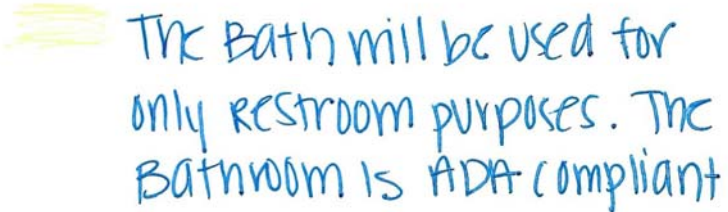 The Bath will be used for
only Restroom purposes. The
Bathroom is ADA compliant